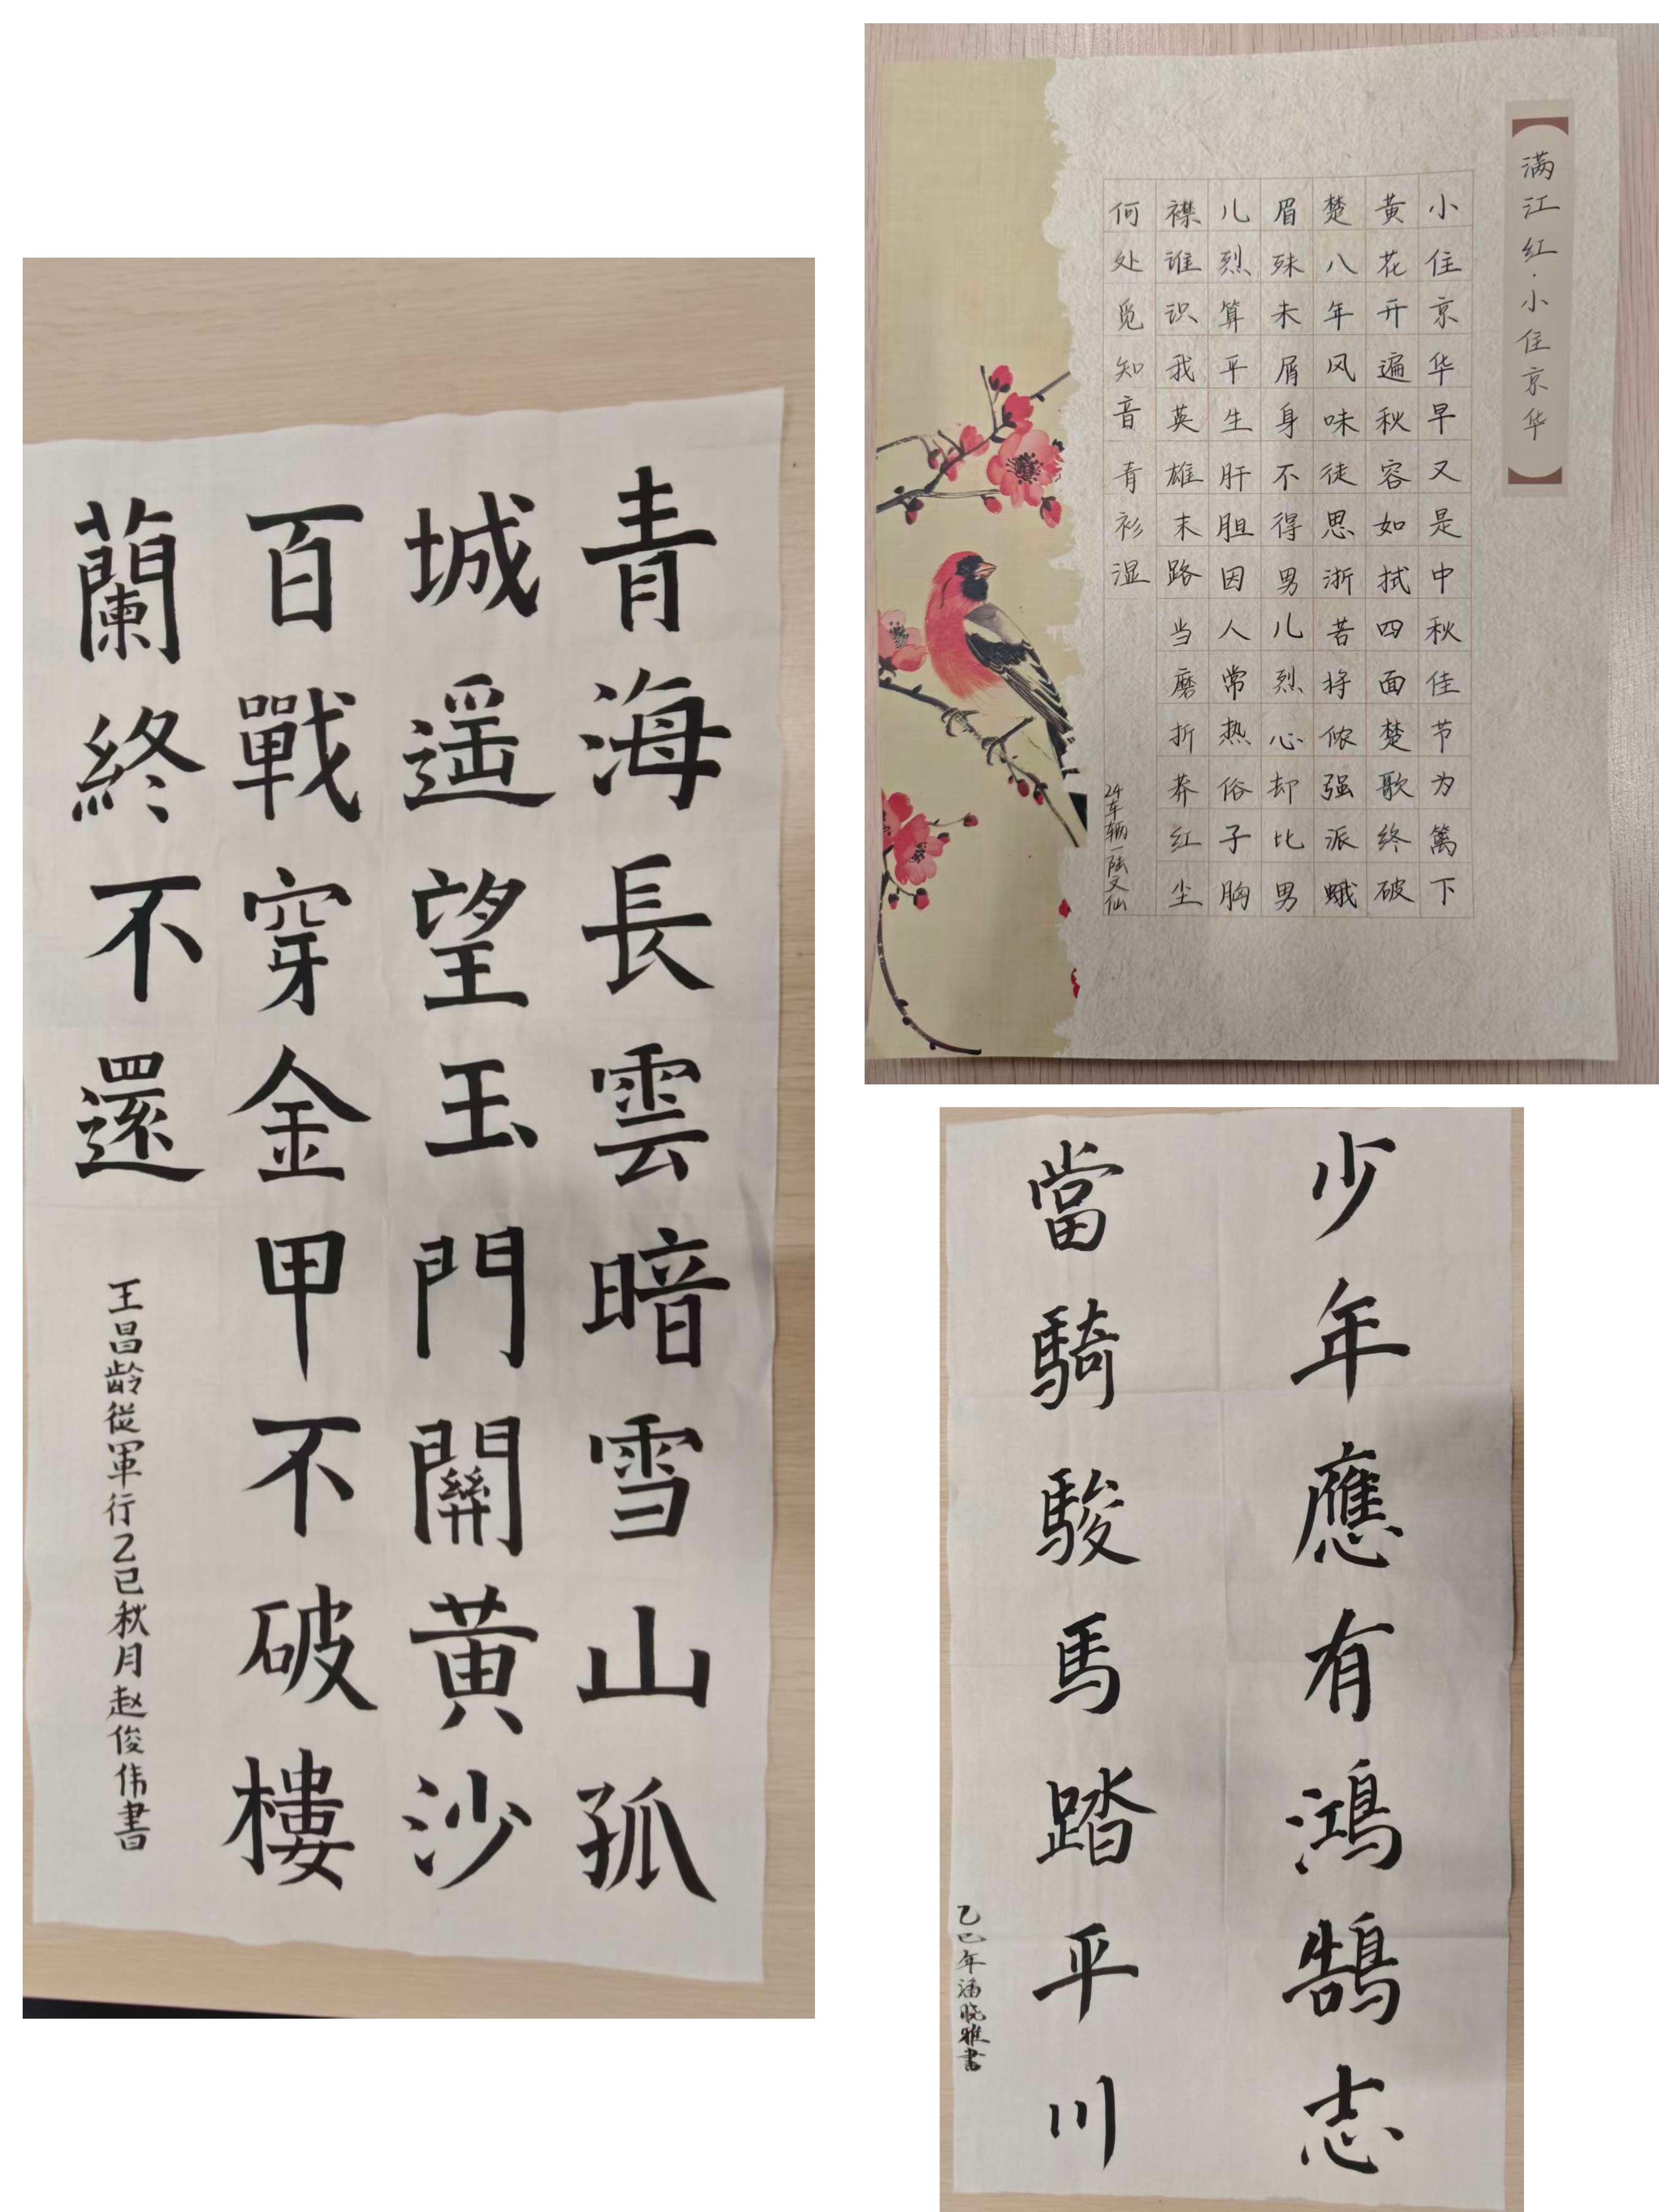 青海長雲暗雪山孤
城遥望玉門關黄沙
百戰穿金甲不破樓
蘭終不還
王昌龄從軍行乙巳秋月赵俊伟書
满江红·小住京华
小住京华早又是中秋佳节为篱下
黄花开遍秋容如拭四面楚歌终破
楚八年风味徒思浙苦将侬强派蛾
眉殊未屑身不得男儿烈心却比男
儿烈算平生肝胆因人常热俗子胸
襟谁识我英雄末路当磨折莽红尘
何处觅知音青衫湿
24车辆一陆文仙
少年應有鴻鵠志
當騎駿馬踏平川
乙巳年潘晓雅書